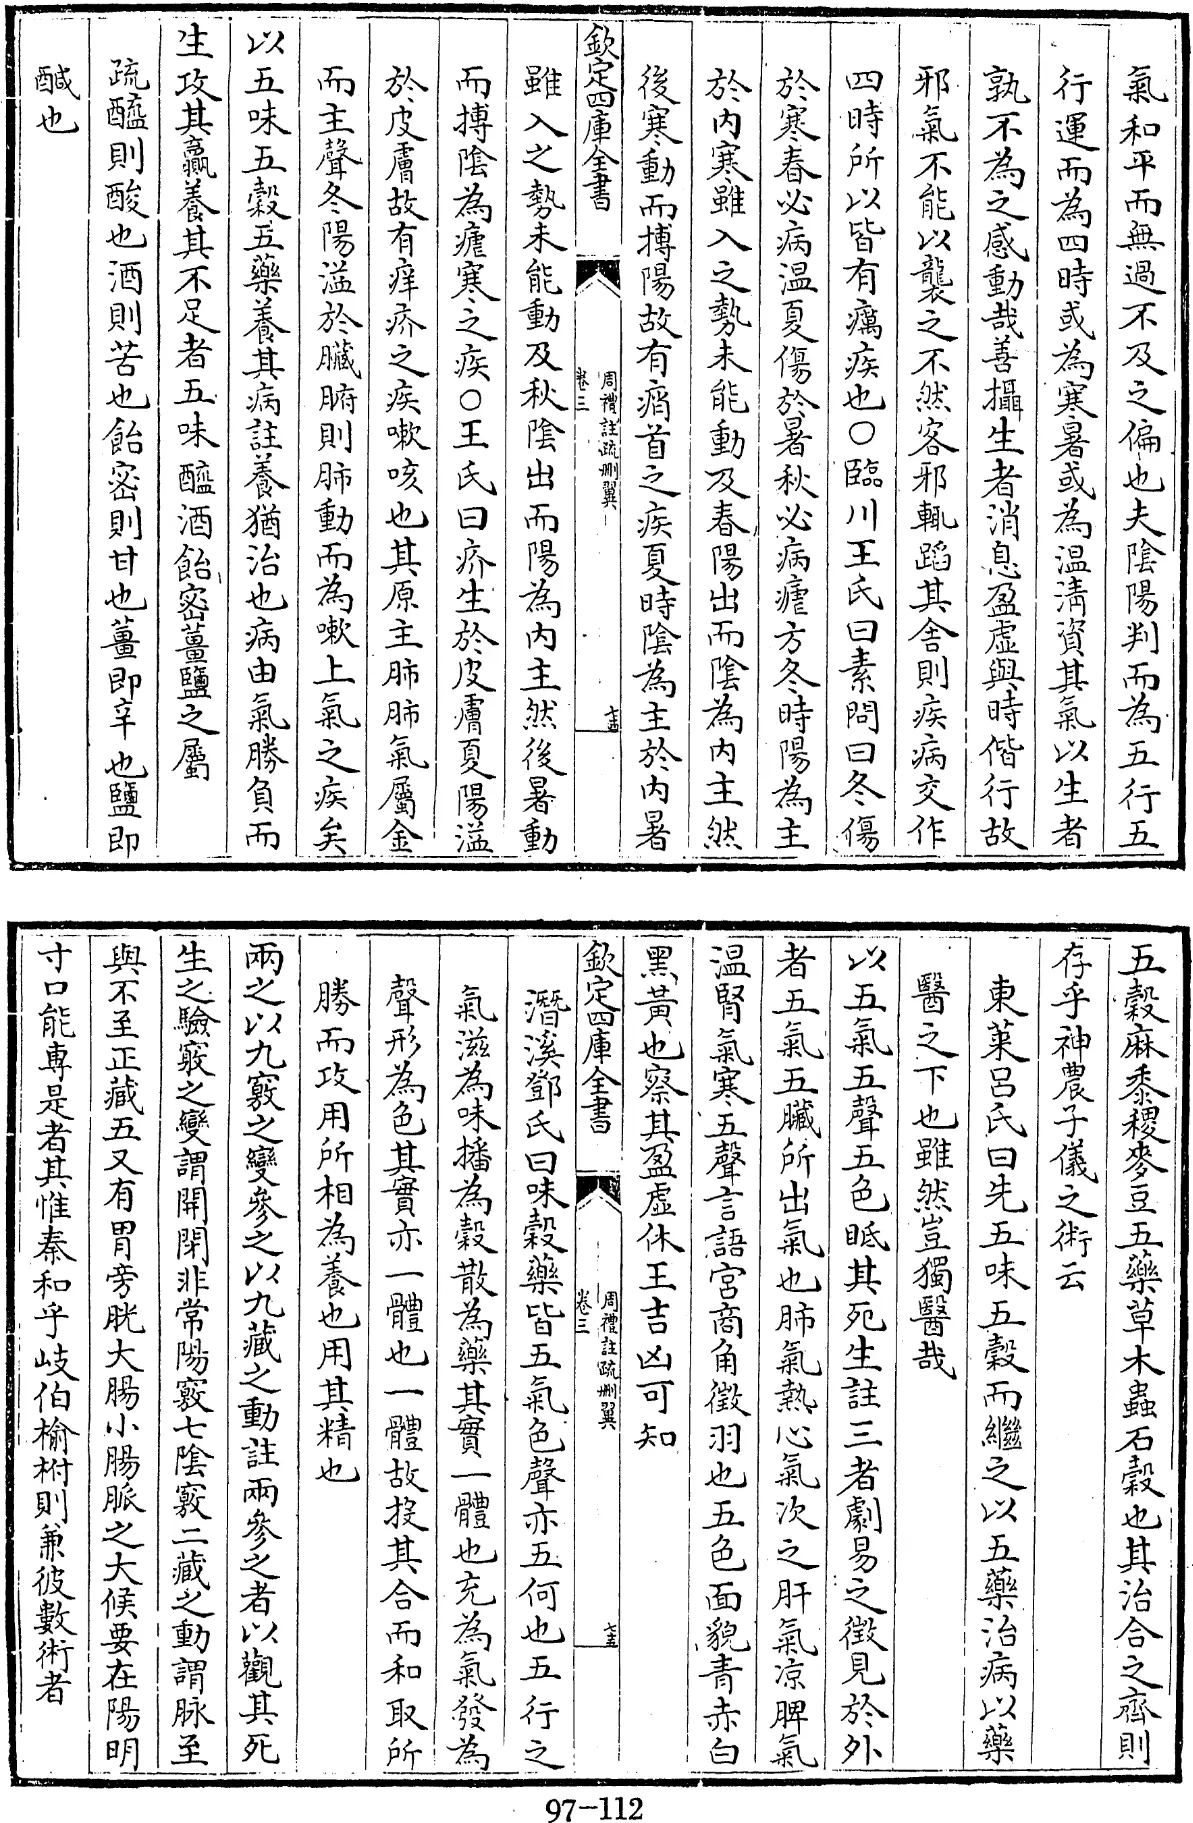 氣和平而無過不及之偏也夫陰陽判而為五行五
行運而為四時或為寒暑或為温清資其氣以生者
孰不為之感動哉善攝生者消息盈虛與時偕行故
邪氣不能以襲之不然客邪輒蹈其舍則疾病交作
四時所以皆有癘疾也○臨川王氏曰素問曰冬傷
於寒春必病温夏傷於暑秋必病瘧方冬時陽為主
於内寒雖入之勢未能動及春陽出而陰為内主然
後寒動而搏陽故有痟首之疾夏時陰為主於内暑
欽定四庫全書
周禮註疏刪翼
卷三
七十四
雖入之勢未能動及秋陰出而陽為内主然後暑動
而搏陰為瘧寒之疾○王氏曰疥生於皮膚夏陽溢
於皮膚故有痒疥之疾嗽咳也其原主肺肺氣屬金
而主聲冬陽溢於臟腑則肺動而為嗽上氣之疾矣
以五味五穀五藥養其病註養猶治也病由氣勝負而
生攻其贏養其不足者五味醯酒飴密薑鹽之屬
疏醯則酸也酒則苦也飴密則甘也薑即辛也鹽即
鹹也
五穀麻黍稷麥豆五藥草木蟲石穀也其治合之齊則
存乎神農子儀之術云
東萊呂氏曰先五味五穀而繼之以五藥治病以藥
醫之下也雖然豈獨醫哉
以五氣五聲五色眡其死生註三者劇易之徵見於外
者五氣五臟所出氣也肺氣熱心氣次之肝氣凉脾氣
温腎氣寒五聲言語宮商角徵羽也五色面貌青赤白
黑黃也察其盈虛休王吉凶可知
欽定四庫全書
周禮註疏刪翼
卷三
七十五
潛溪鄧氏曰味穀藥皆五氣色聲亦五何也五行之
氣滋為味播為穀散為藥其實一體也充為氣發為
聲形為色其實亦一體也一體故投其合而和取所
勝而攻用所相為養也用其精也
兩之以九竅之變參之以九藏之動註兩參之者以觀其死
生之驗竅之變謂開閉非常陽竅七陰竅二藏之動謂脉至
與不至正藏五又有胃旁胱大腸小腸脈之大候要在陽明
寸口能專是者其惟秦和乎岐伯榆柎則兼彼數術者
97-112